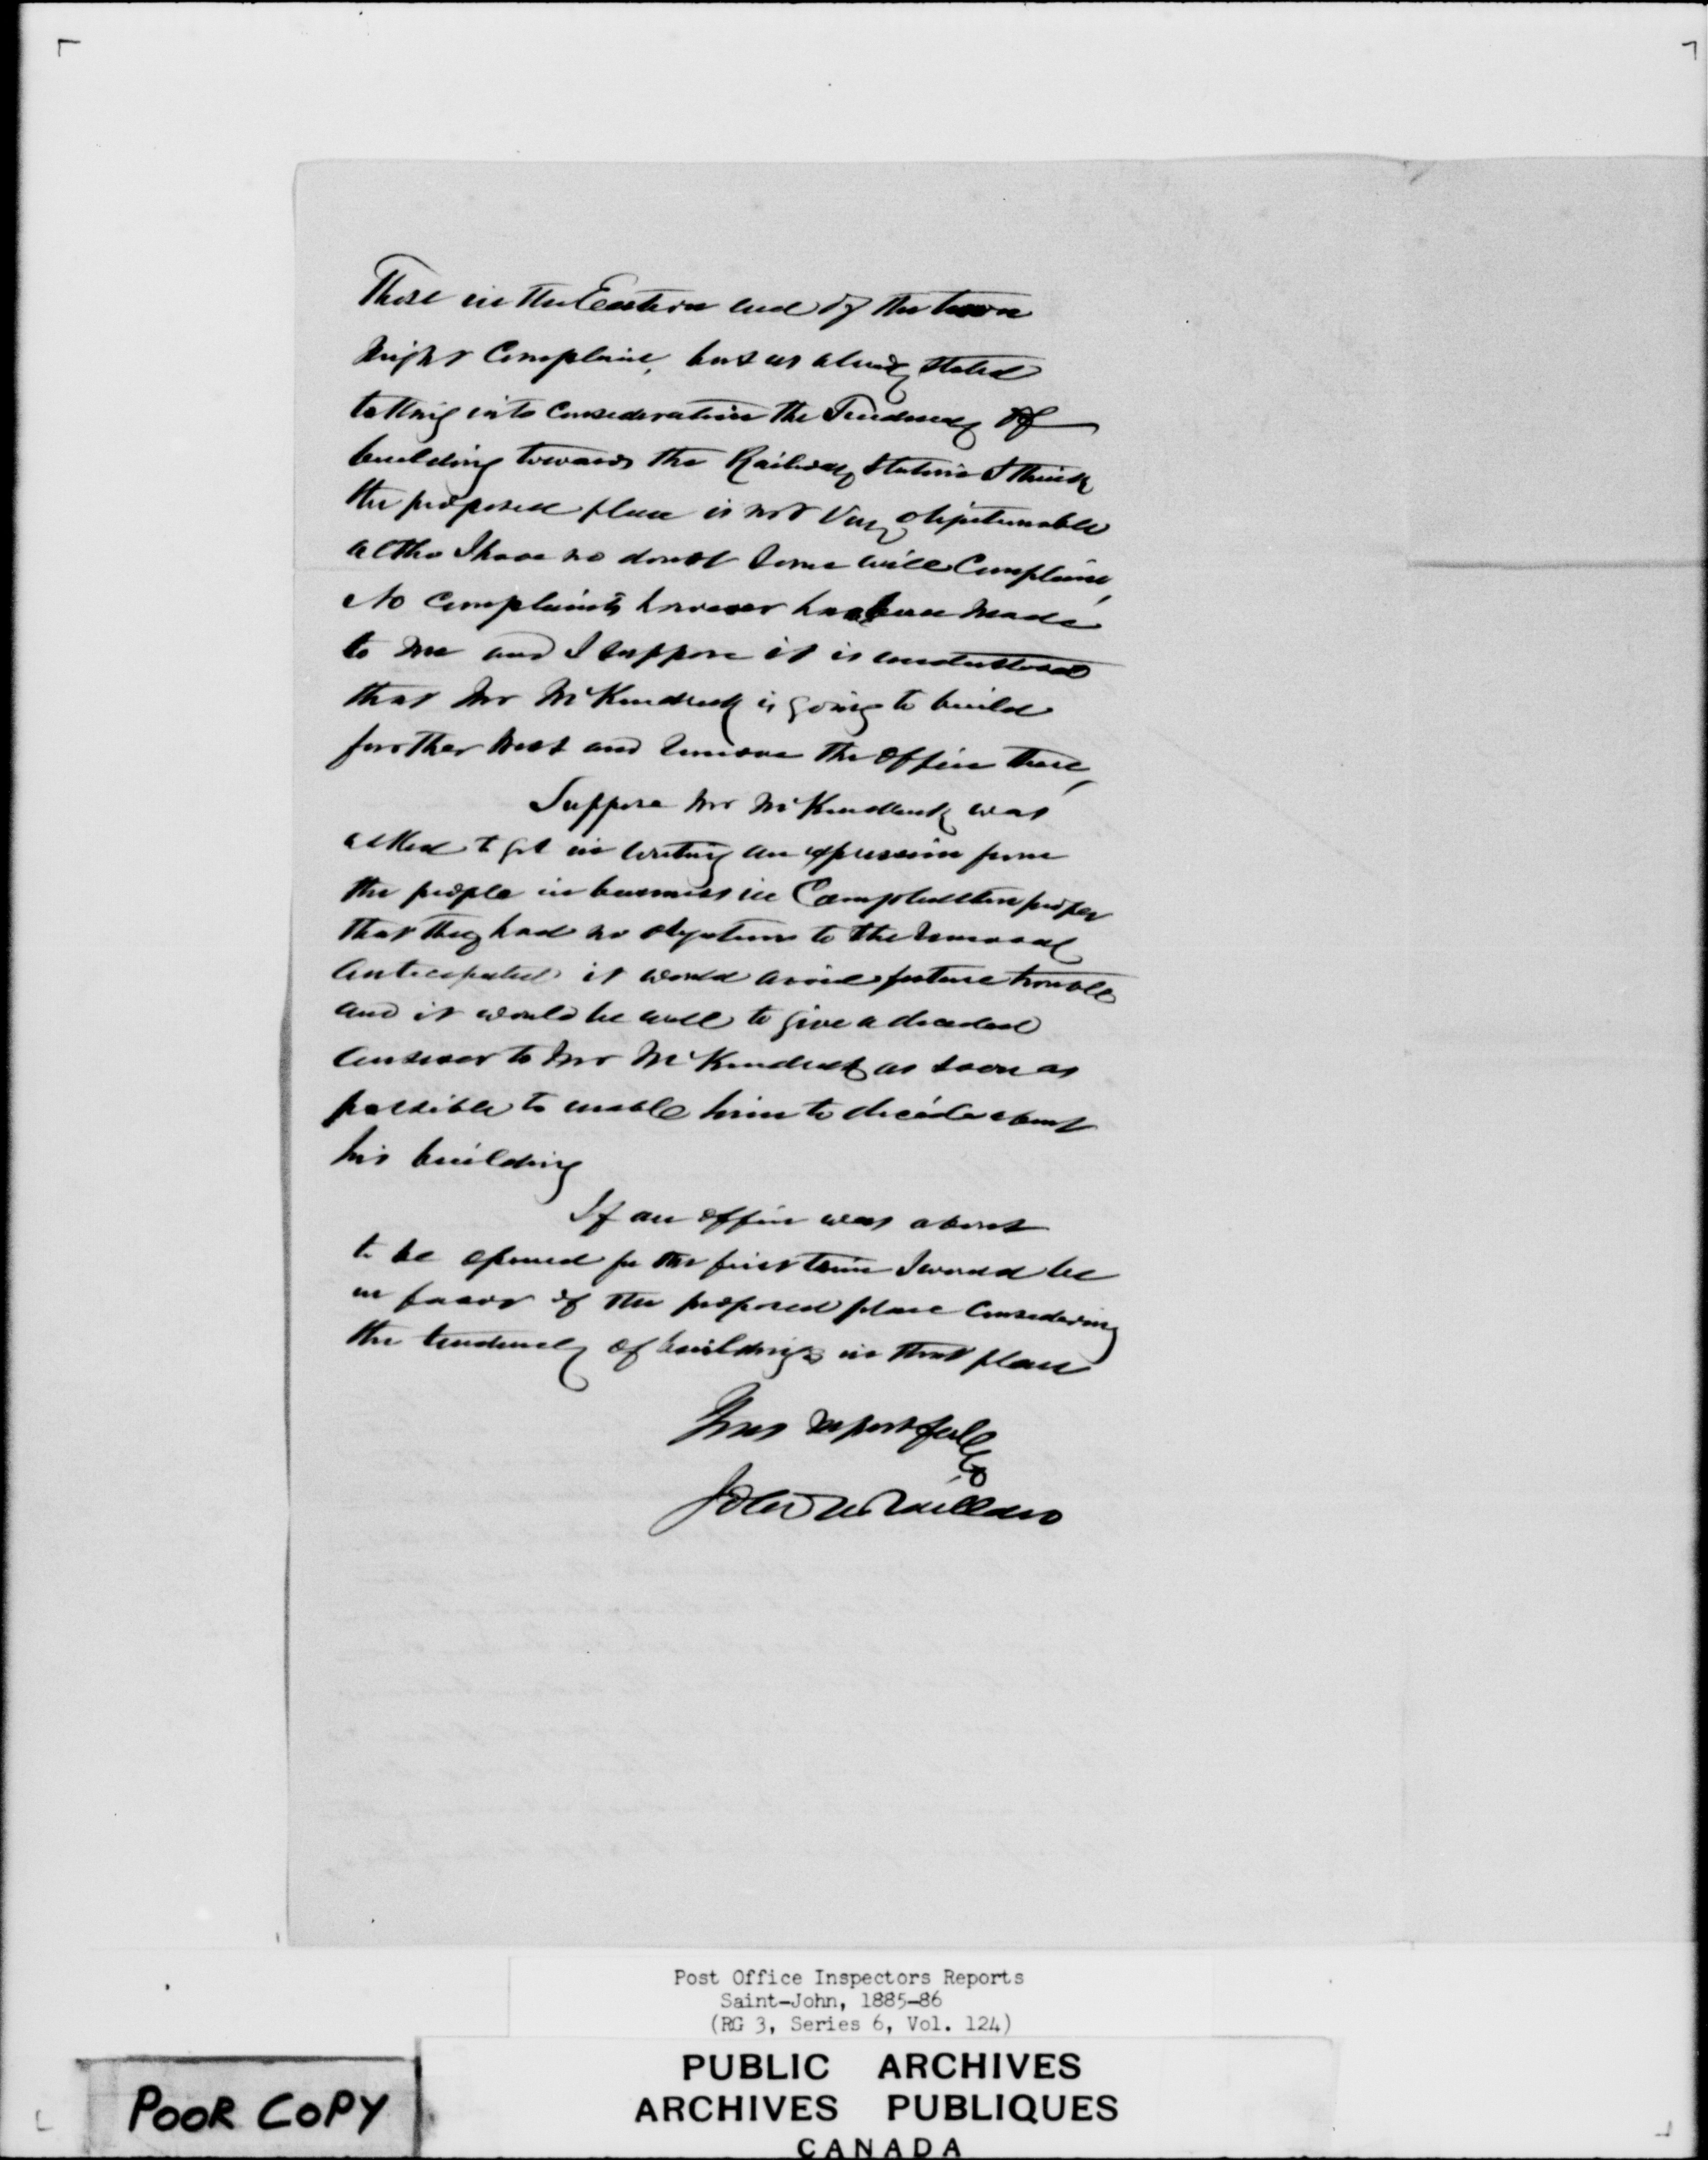 Those in the Eastern end of the town
Might Complain, but as already stated
taking into Consideration the Tendency of
building towards the Railway Station I think
the proposed place is not Very objectionable
altho I have no doubt Some will Complain,
No Complaints however has been Made
to Me and I suppose it is understood
that Mr McKendrick is going to build
further West and Remove the Office there,
Suppose Mr McKendrick was
asked to get in writing an expression from
the people in business in Campbellton proper
that they had no objections to the Removal
Anticipated it would avoid future trouble
and it would be well to give a decided
Answer to Mr McKendrick as soon as
possible to enable him to decide about
his building
If an office was about
to be opened for the first time I would be
in favor of the proposed place Considering
the tendency of buildings in that place
Respectfully
John
Post Office Inspectors Reports
Saint-John, 1885-86
(RG 3, Series 6, Vol. 124)
PUBLIC ARCHIVES
ARCHIVES PUBLIQUES
CANADA
POOR COPY